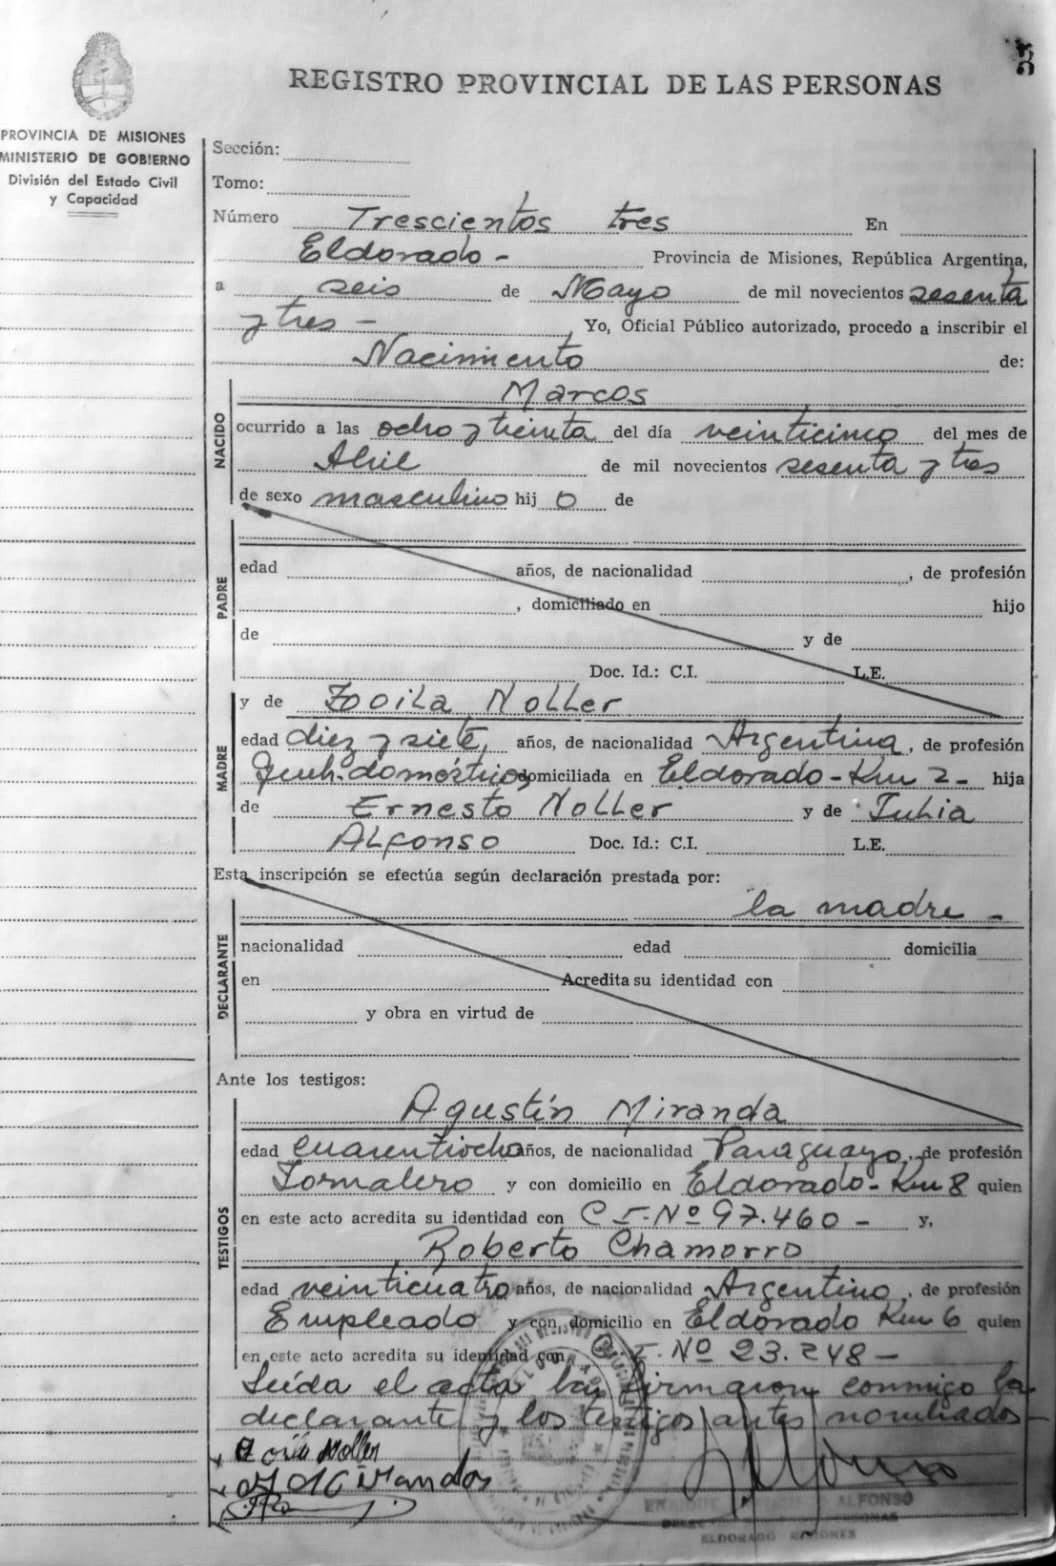 REGISTRO PROVINCIAL DE LAS PERSONAS
PROVINCIA DE MISIONES
MINISTERIO DE GOBIERNO
División del Estado Civil
y Capacidad
Sección:
Tomo:
Número Trescientos tres En
Eldorado - Provincia de Misiones, República Argentina,
a seis de Mayo de mil novecientos sesenta
y tres - , Yo, Oficial Público autorizado, procedo a inscribir el
Nacimiento de:
NACIDO
Marcos
ocurrido a las ocho y treinta del día veinticinco del mes de
Abril de mil novecientos sesenta y tres
de sexo masculino hij o de
PADRE
edad años, de nacionalidad , de profesión
, domiciliado en hijo
de y de
Doc. Id.: C.I. L.E.
MADRE
y de Zooila Noller
edad diez y siete, años, de nacionalidad Argentina, de profesión
domiciliada en Eldorado - Km 2 - hija
de Ernesto Noller y de Julia
Alfonso Doc. Id.: C.I. L.E.
Esta inscripción se efectúa según declaración prestada por:
la madre -
DECLARANTE
nacionalidad edad domicilia
en Acredita su identidad con
y obra en virtud de
Ante los testigos:
TESTIGOS
Agustín Miranda
edad cuarentiocho años, de nacionalidad Paraguayo, de profesión
Jornalero y con domicilio en Eldorado - Km 8 quien
en este acto acredita su identidad con C I. Nº 97.460 - y,
Roberto Chamorro
edad veinticuatro años, de nacionalidad Argentino, de profesión
Empleado y con domicilio en Eldorado Km 6 quien
en este acto acredita su identidad con C. I. Nº 23.248 -
Leída el acta la firmaron conmigo la
declarante y los testigos antes nombrados -
Noller
ALFONSO
ELDORADO MISIONES